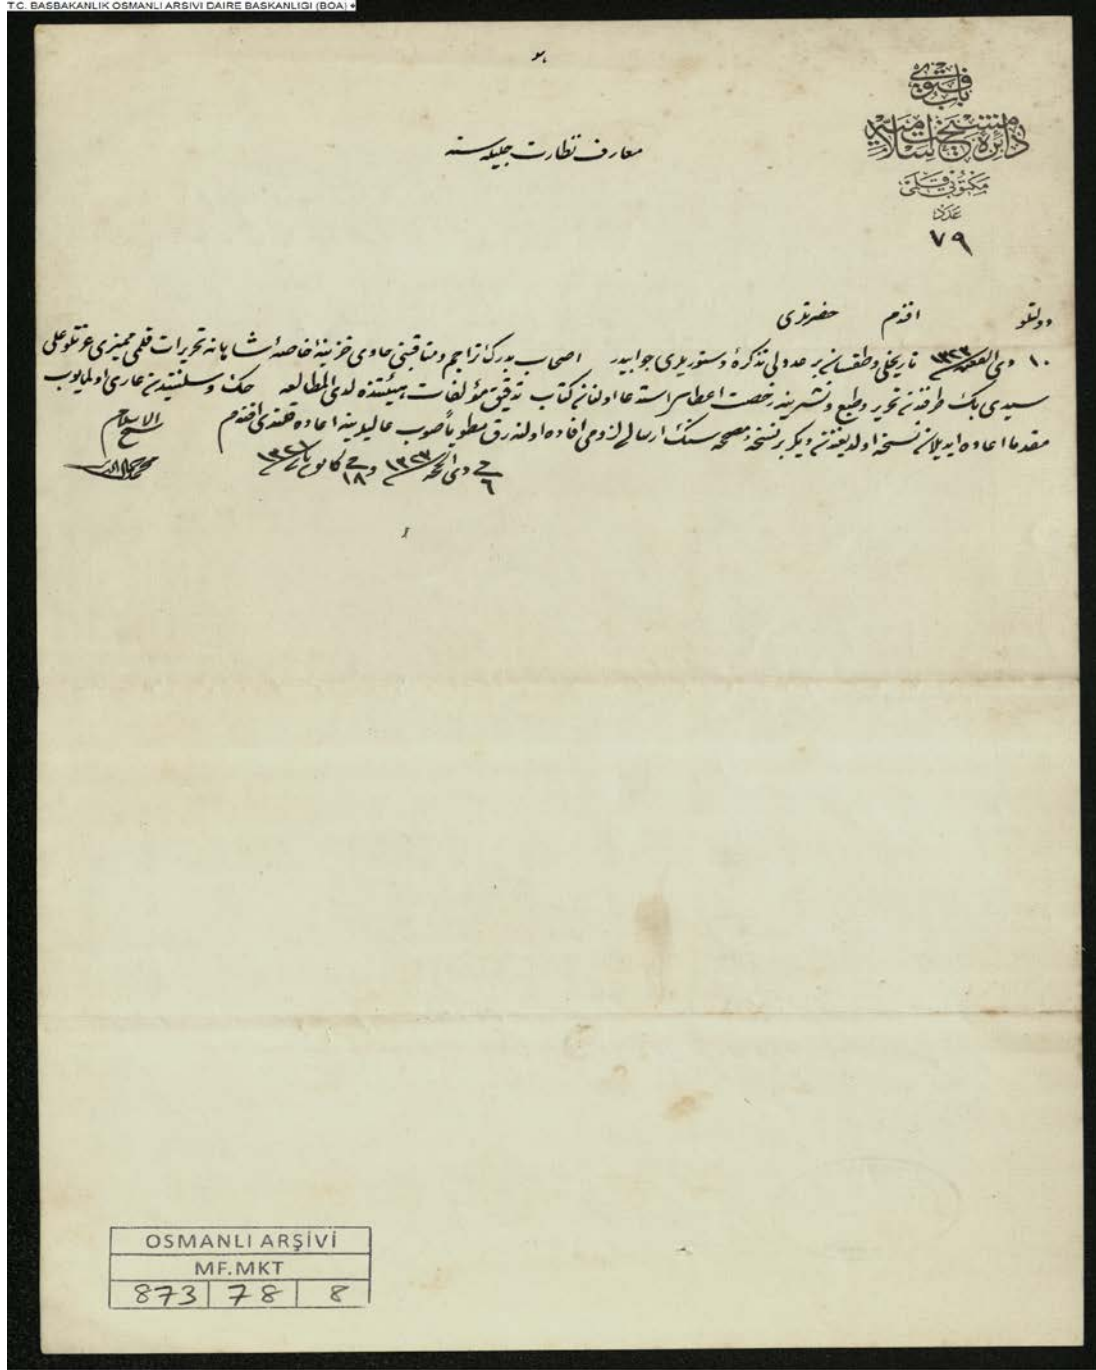 T.C. BASBAKANLIK OSMANLI ARSIVI DAIRE BASKANLIGI (BOA)
باب فتوى
دائرهٔ مشيخت اسلاميه
مكتوبى قلمى
عدد
٧٩
معارف نظارت جليله سنه
دولتلو افندم حضرتلرى
١٠ ذى القعده ١٣٢٢ تاريخلى و طقسان بر عددلى تذكرهٔ دستوريلرى جوابيدر اصحاب بدرك تراجم و مناقبنى حاوى خزينهٔ خاصهٔ شاهانه تحريرات قلمى مميزى عزتلو على
سيدى بك طرفندن تحرير و طبع و نشرينه رخصت اعطاسى استدعا اولنان كتاب تدقيق مؤلفات هيئتنده لدى المطالعه حك و سلنتيدن عارى اولمايوب
مقدما اعاده ايديلان نسخه اولديغندن ديكر بر نسخهٔ مصححه سنك ارسالى لزومى افاده اولنه رق مطوياً صوب عاليلرينه اعاده قلندى افندم
فى ٦ ذى الحجه ١٣٢٢ و فى ١٨ كانون ثانى ١٣٢٠
شيخ الاسلام
محمد جمال الدين
OSMANLI ARŞİVİ
MF.MKT
873 78 8